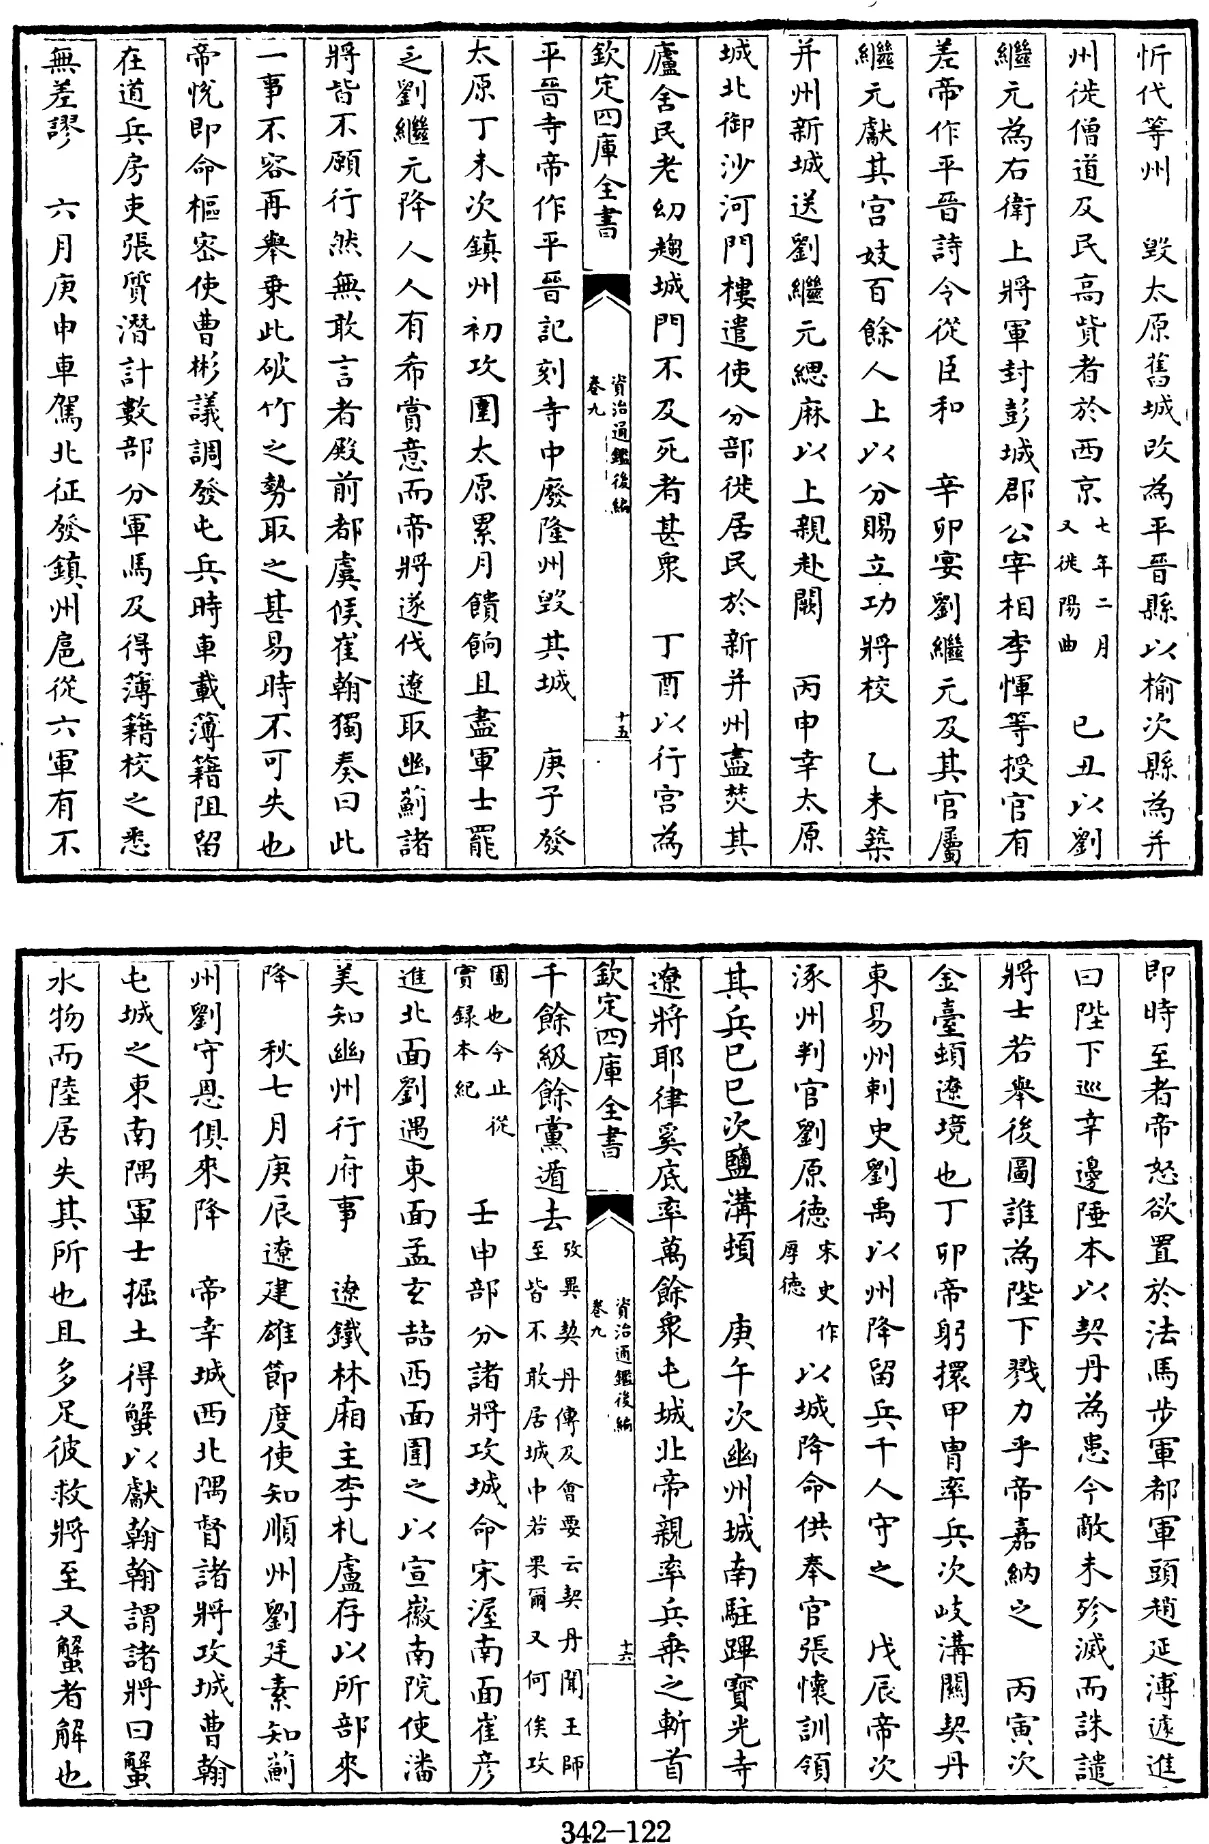 忻代等州　毁太原舊城改為平晉縣以榆次縣為并
州徙僧道及民高貲者於西京七年二月又徙陽曲　己丑以劉
繼元為右衛上將軍封彭城郡公宰相李惲等授官有
差帝作平晉詩令從臣和　辛卯宴劉繼元及其官屬
繼元獻其宫妓百餘人上以分賜立功將校　乙未築
并州新城送劉繼元緦麻以上親赴闕　丙申幸太原
城北御沙河門樓遣使分部徙居民於新并州盡焚其
廬舍民老幼趨城門不及死者甚衆　丁酉以行宫為
欽定四庫全書
資治通鑑後編
卷九
十五
平晉寺帝作平晉記刻寺中廢隆州毁其城　庚子發
太原丁未次鎮州初攻圍太原累月饋餉且盡軍士罷
乏劉繼元降人人有希賞意而帝將遂伐遼取幽薊諸
將皆不願行然無敢言者殿前都虞侯崔翰獨奏曰此
一事不容再舉乘此破竹之勢取之甚易時不可失也
帝恱即命樞宻使曹彬議調發屯兵時車載簿籍阻留
在道兵房吏張質潛計數部分軍馬及得簿籍校之悉
無差謬　六月庚申車駕北征發鎮州扈從六軍有不
即時至者帝怒欲置於法馬步軍都軍頭趙延溥遽進
曰陛下巡幸邊陲本以契丹為患今敵未殄滅而誅譴
將士若舉後圖誰為陛下戮力乎帝嘉納之　丙寅次
金臺頓遼境也丁卯帝躬擐甲胄率兵次岐溝關契丹
東易州刺史劉禹以州降留兵千人守之　戊辰帝次
涿州判官劉原德宋史作厚德以城降命供奉官張懷訓領
其兵己巳次鹽溝頓　庚午次幽州城南駐蹕寳光寺
遼將耶律奚底率萬餘衆屯城北帝親率兵乘之斬首
欽定四庫全書
資治通鑑後編
卷九
十六
千餘級餘黨遁去攷異契丹傳及會要云契丹聞王師至皆不敢居城中若果爾又何俟攻
圍也今止從實錄本紀　壬申部分諸將攻城命宋渥南面崔彦
進北面劉遇東面孟玄喆西面圍之以宣徽南院使潘
美知幽州行府事　遼鐵林廂主李札盧存以所部來
降　秋七月庚辰遼建雄節度使知順州劉廷素知薊
州劉守恩俱來降　帝幸城西北隅督諸將攻城曹翰
屯城之東南隅軍士掘土得蟹以獻翰翰謂諸將曰蟹
水物而陸居失其所也且多足彼救將至又蟹者解也
342-122